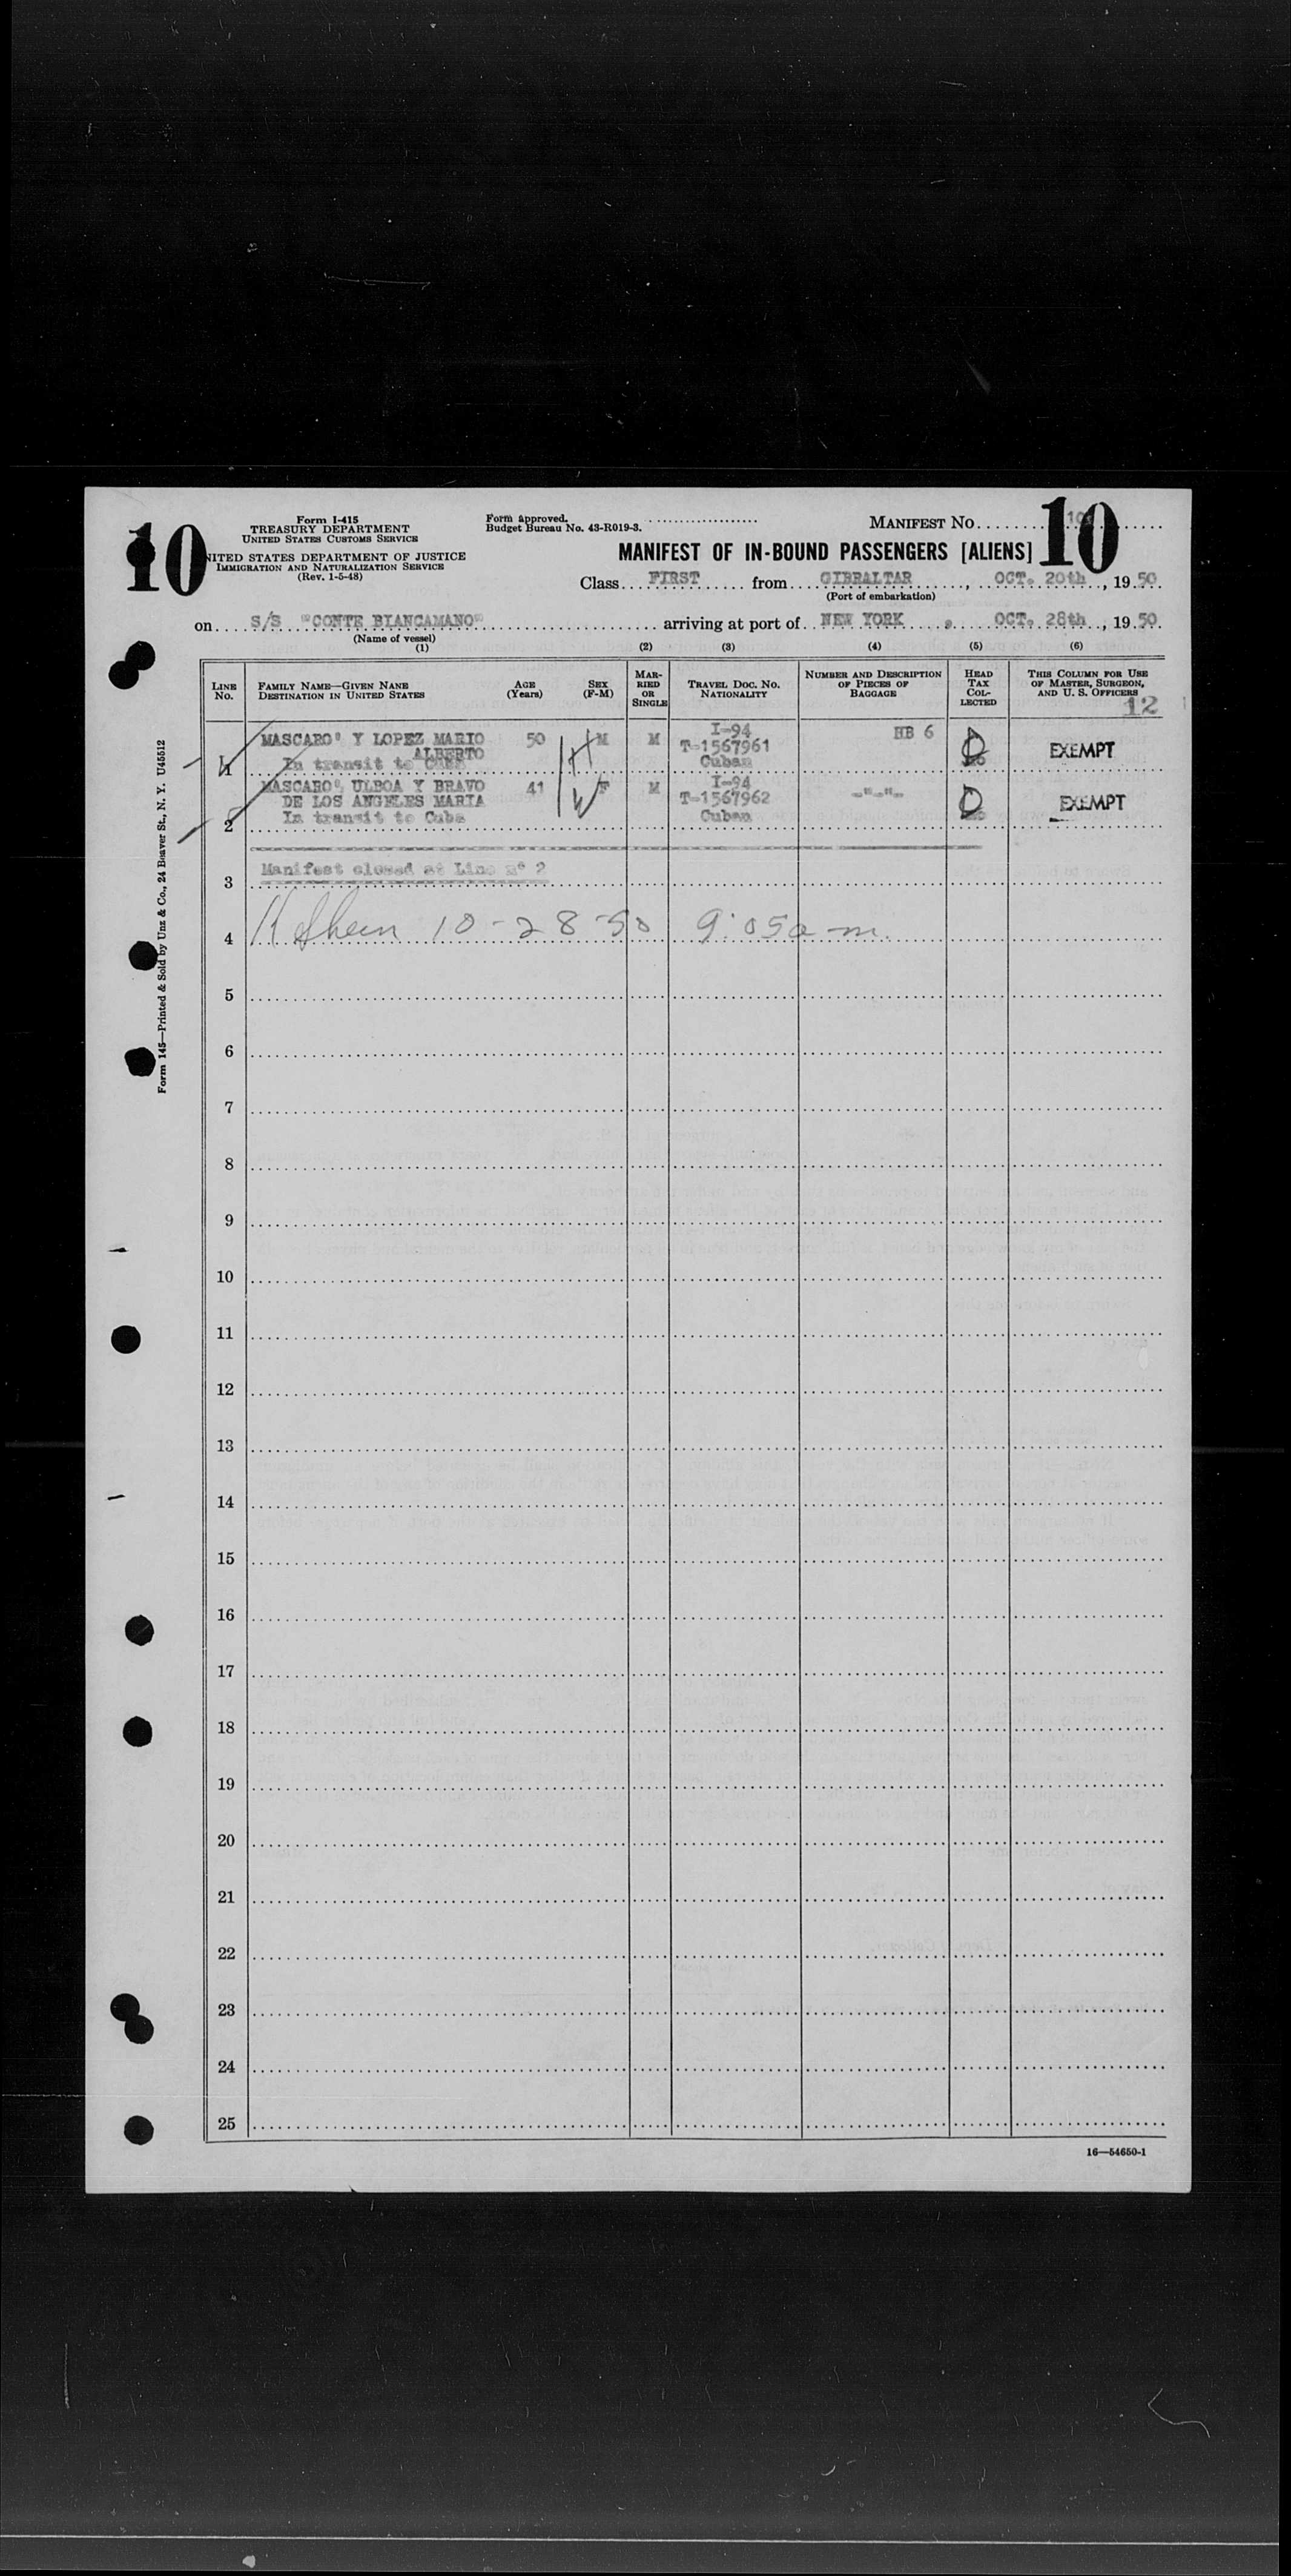 10
Form I-415
TREASURY DEPARTMENT
UNITED STATES CUSTOMS SERVICE
UNITED STATES DEPARTMENT OF JUSTICE
IMMIGRATION AND NATURALIZATION SERVICE
(Rev. 1-5-48)
Form approved.
Budget Bureau No. 43-R019-3.
MANIFEST NO. 10
10
MANIFEST OF IN-BOUND PASSENGERS [ALIENS]
Class FIRST from GIBRALTAR, OCT. 20th, 1950
(Port of embarkation)
on S/S "CONTE BIANCAMANO" arriving at port of NEW YORK, OCT. 28th, 1950
(Name of vessel)
(1) (2) (3) (4) (5) (6)
LINE NO.
FAMILY NAME—GIVEN NANE
DESTINATION IN UNITED STATES
AGE (Years)
SEX (F-M)
MARRIED OR SINGLE
TRAVEL DOC. NO. NATIONALITY
NUMBER AND DESCRIPTION OF PIECES OF BAGGAGE
HEAD TAX COLLECTED
THIS COLUMN FOR USE OF MASTER, SURGEON, AND U. S. OFFICERS
12
1 MASCARO' Y LOPEZ MARIO 50 M M I-94 HB 6 EXEMPT
ALBERTO T-1567961
In transit to Cuba Cuban
MASCARO', ULBOA Y BRAVO 41 F M I-94 -"-"- EXEMPT
DE LOS ANGELES MARIA T-1567962
2 In transit to Cuba Cuban
3 Manifest closed at Line n° 2
4 10-28-50 9:05 a-m.
5
6
7
8
9
10
11
12
13
14
15
16
17
18
19
20
21
22
23
24
25
16—54650-1
Form 145—Printed & Sold by Unz & Co., 24 Beaver St., N. Y. U45512